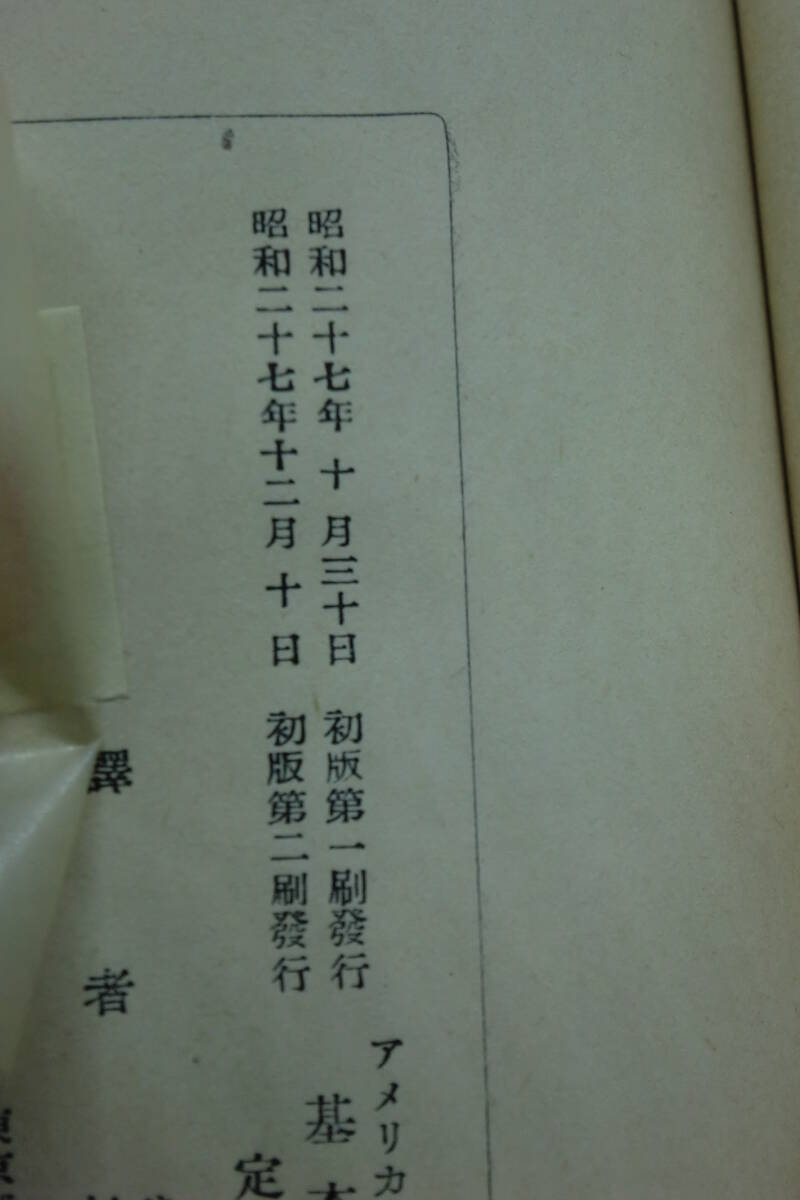 昭和二十七年 十 月三十日 初版第一刷發行
昭和二十七年十二月 十 日 初版第二刷發行
アメリカ
基本
定
譯 者
東京